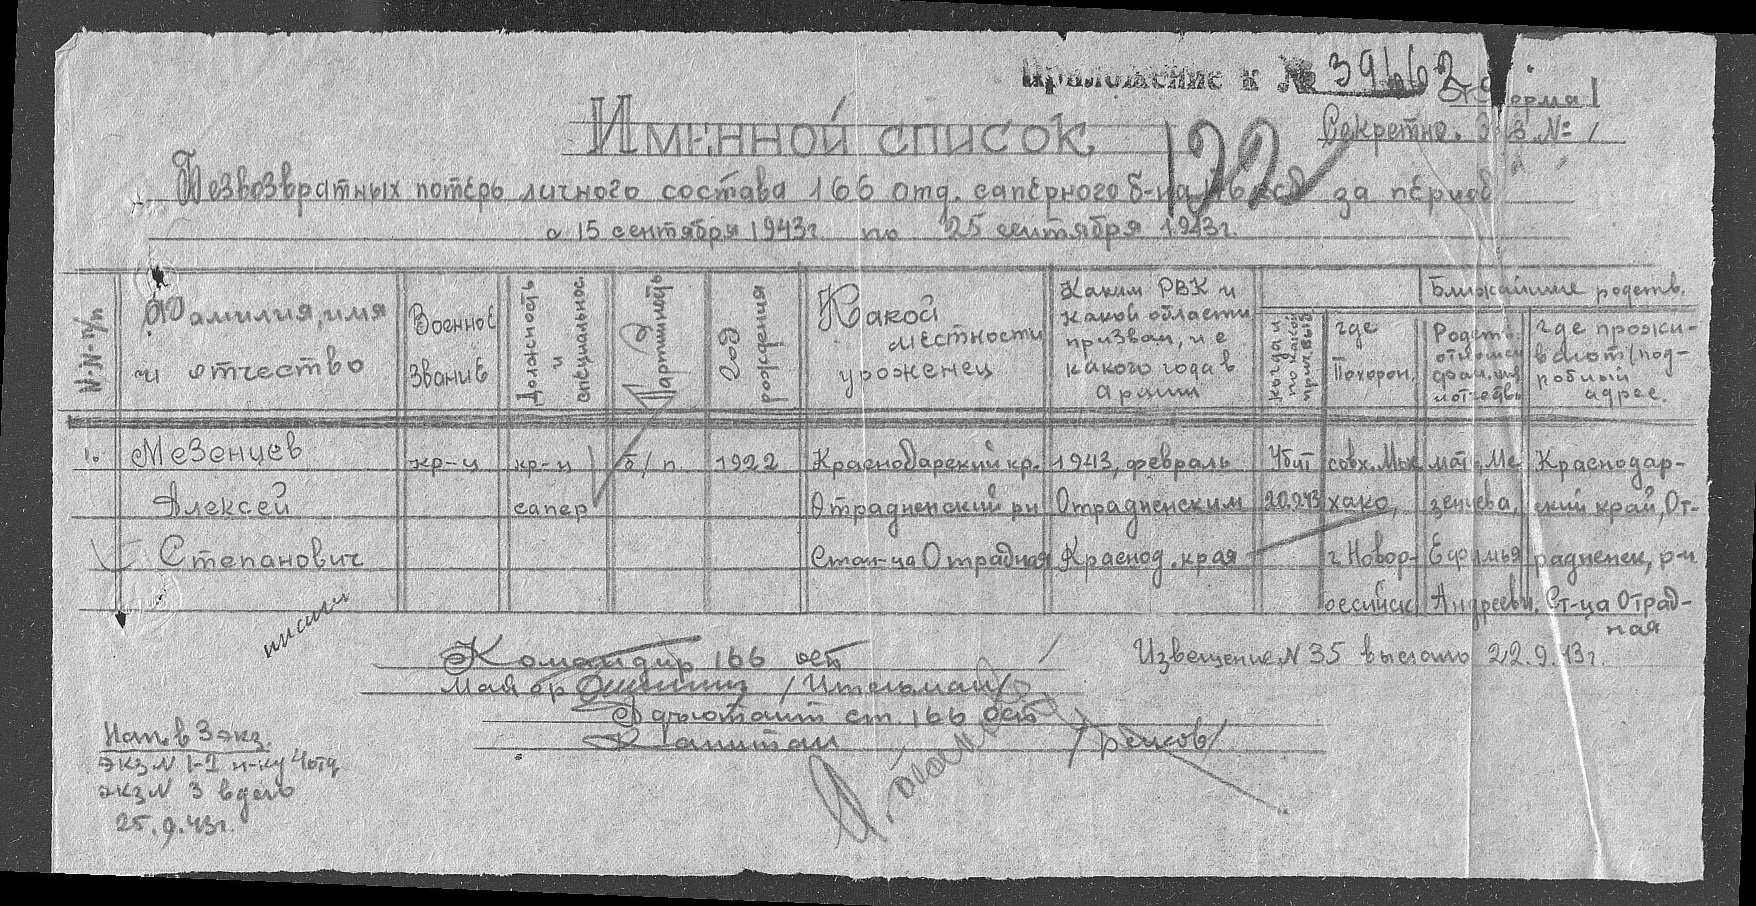 Приложение к № 39662
Форма 1
Секретно. Экз. № 1
Именной список
122
Безвозвратных потерь личного состава 166 отд. сапёрного б-на за период
с 15 сентября 1943г. по 25 сентября 1943г.
№№ п/п
Фамилия, имя и отчество
Военное звание
Должность и специальнос.
Партийность
Год рождения
Какой местности уроженец
Каким РВК и какой области призван, и с какого года в Армии
Когда и по какой причине выбыл
где Похорон.
Ближайшие родств.
Родств. отношен. фам. имя и отчество
где прожи-вают (под-робный адрес.
1. Мезенцев кр-ц кр-ц б/п 1922 Краснодарский кр. 1943, февраль Убит совх. Мыс мать, Ме Краснодар-
Алексей сапер Отрадненский рн Отрадненским 20.9.43 хако, зенцева, ский край, От-
Степанович Стан-ца Отрадная Краснод. края г. Новор- Ефимья радненск, р-н
оссийск Андреевн. Ст-ца Отрад-
ная
писали
Командир 166 осб
Извещение N 35 выслано 22.9.43г.
Майор /Ительман/
Адъютант ст. 166 осб
Капитан
Нап. в 3 экз.
экз N 1-2 н-ку 4 отд
экз N 3 в дело
25.9.43г.